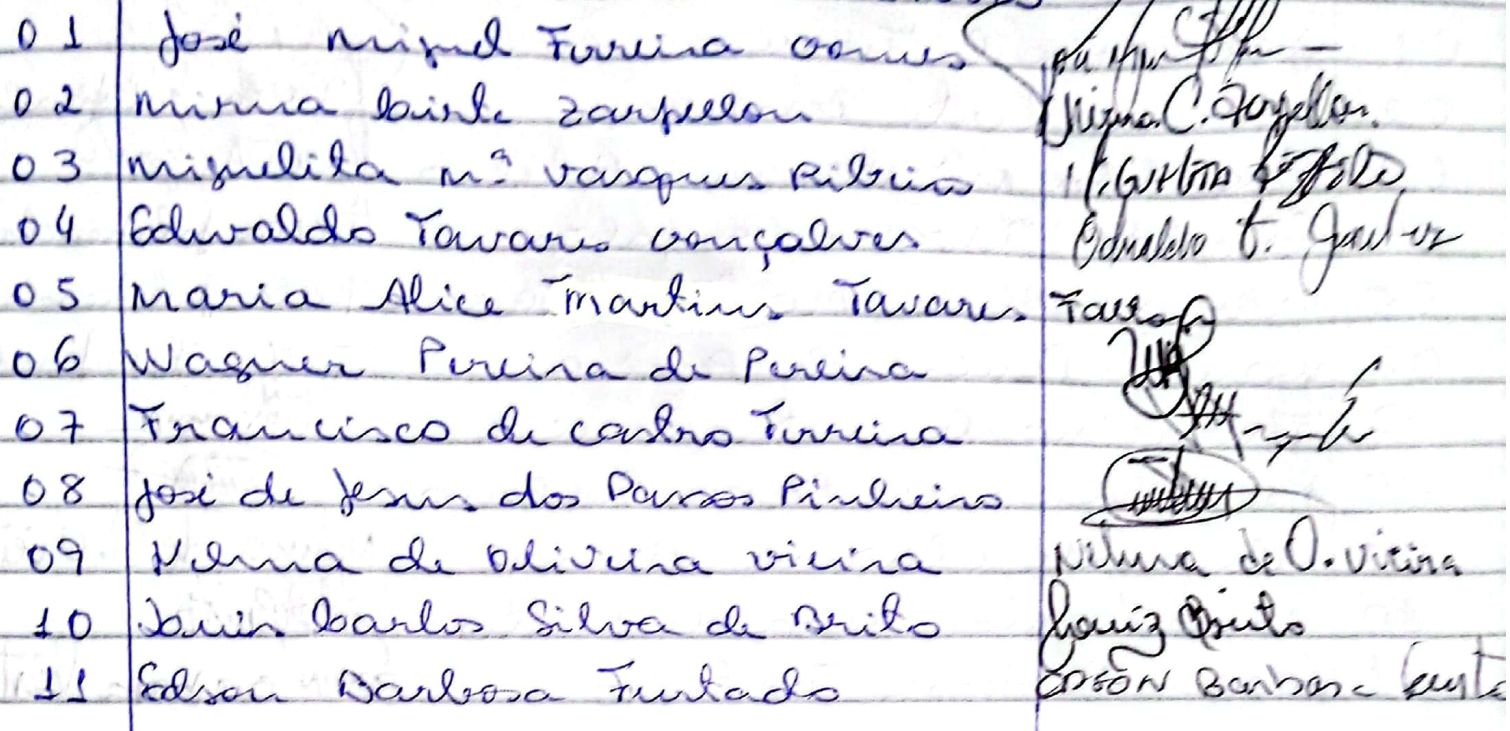 01 José Miguel Ferreira Gomes
02 Mirna Cainte Zarpellon Mirna C. Zarpellon.
03 Miguelita Mª Vasques Ribeiro
04 Edwaldo Tavares Gonçalves Edwaldo T.
05 Maria Alice Martins Tavares
06 Wagner Pereira de Pereira
07 Francisco de Castro Ferreira
08 José de Jesus dos Passos Pinheiro
09 Nelma de Oliveira Vieira Nelma de O. Vieira
10 Luis Carlos Silva de Brito Brito
11 Edson Barbosa Furtado Edson Barbosa